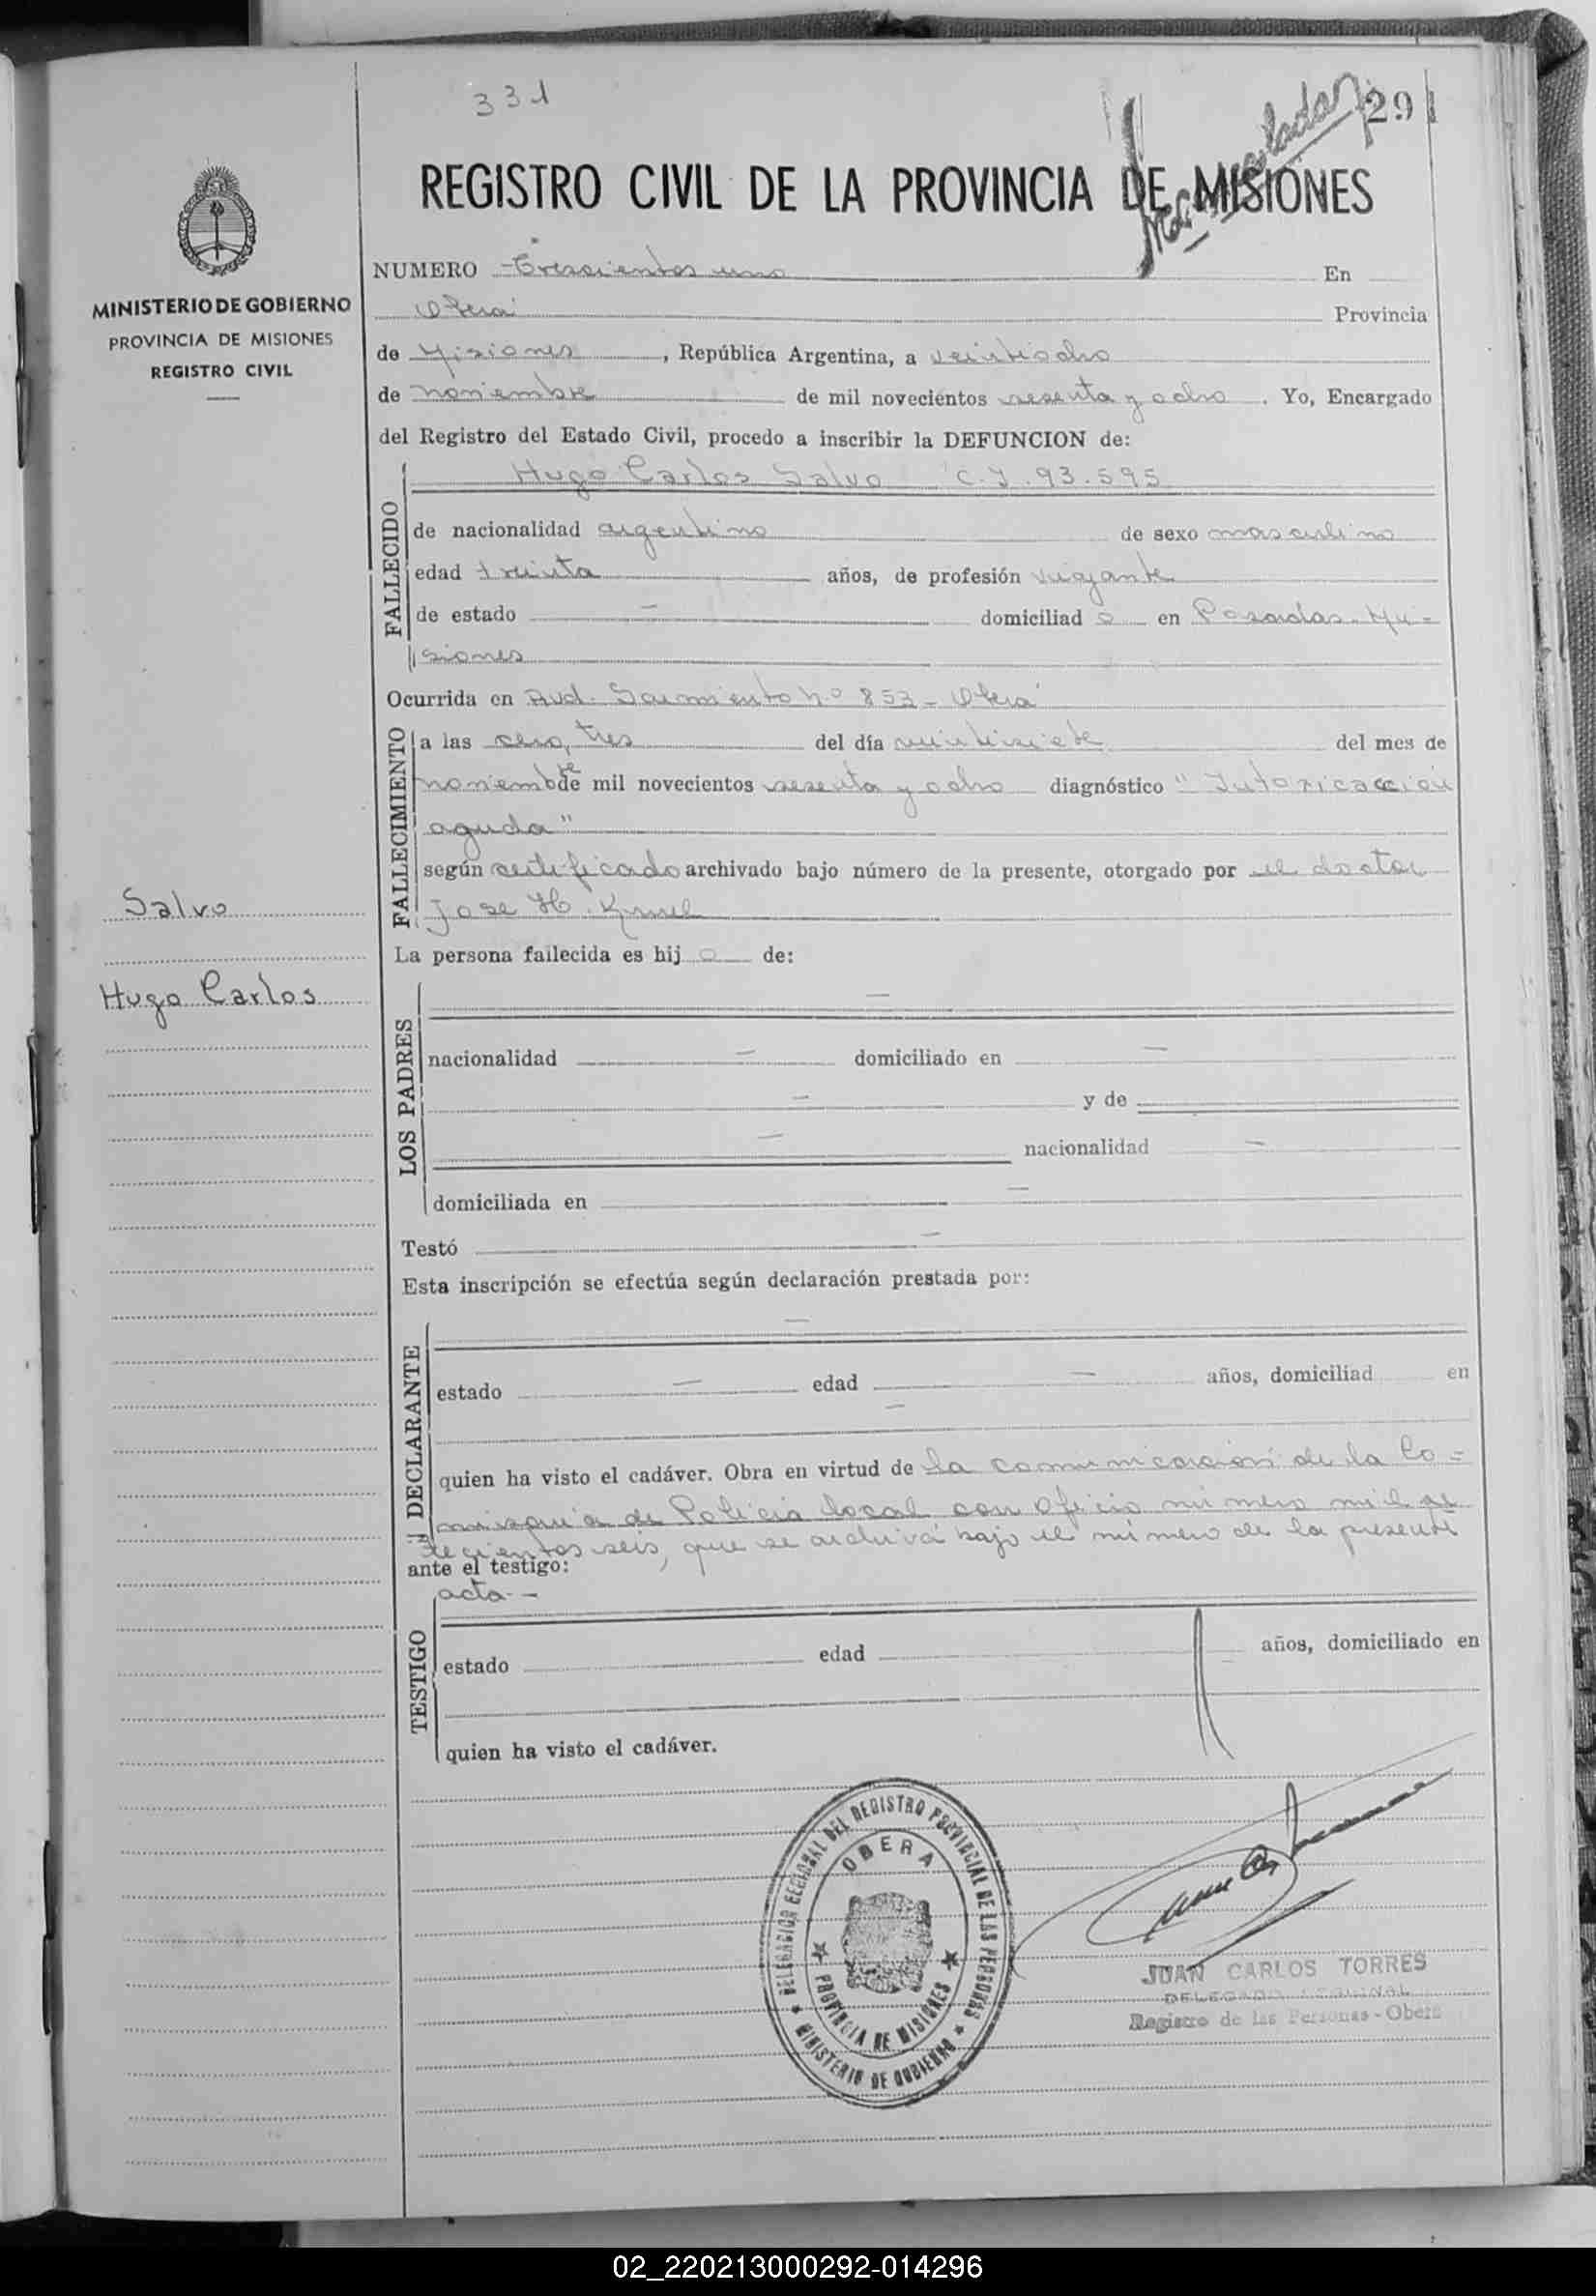 331
291
REGISTRO CIVIL DE LA PROVINCIA DE MISIONES
MINISTERIO DE GOBIERNO
PROVINCIA DE MISIONES
REGISTRO CIVIL
NUMERO Trescientos uno En
Oberá Provincia
de Misiones, República Argentina, a veintiocho
de noviembre de mil novecientos sesenta y ocho. Yo, Encargado
del Registro del Estado Civil, procedo a inscribir la DEFUNCION de:
FALLECIDO
Hugo Carlos Salvo C.I. 93.595
de nacionalidad argentino de sexo masculino
edad treinta años, de profesión viajante
de estado — domiciliad o en Posadas. Mi-
siones
Ocurrida en Avd. Sarmiento nº 853 - Oberá
FALLECIMIENTO
a las cero, tres del día veintisiete del mes de
noviembre de mil novecientos sesenta y ocho diagnóstico "Intoxicacción
aguda"
según certificado archivado bajo número de la presente, otorgado por el doctor
Jose H.
Salvo
Hugo Carlos
La persona fallecida es hij o de:
LOS PADRES
—
nacionalidad — domiciliado en —
— y de
— nacionalidad —
domiciliada en —
Testó —
Esta inscripción se efectúa según declaración prestada por:
DECLARANTE
—
estado — edad — años, domiciliad en
—
quien ha visto el cadáver. Obra en virtud de la comunicación de la Co-
misaría de Policia local con Oficio número mil se
tecientos seis, que se archivá bajo el número de la presente
ante el testigo:
acta.-
TESTIGO
estado edad años, domiciliado en
quien ha visto el cadáver.
DELEGACION REGIONAL DEL REGISTRO PROVINCIAL DE LAS PERSONAS
OBERA
PROVINCIA DE MISIONES
MINISTERIO DE GOBIERNO
JUAN CARLOS TORRES
DELEGADO REGIONAL
Registro de las Personas - Oberá
02_220213000292-014296